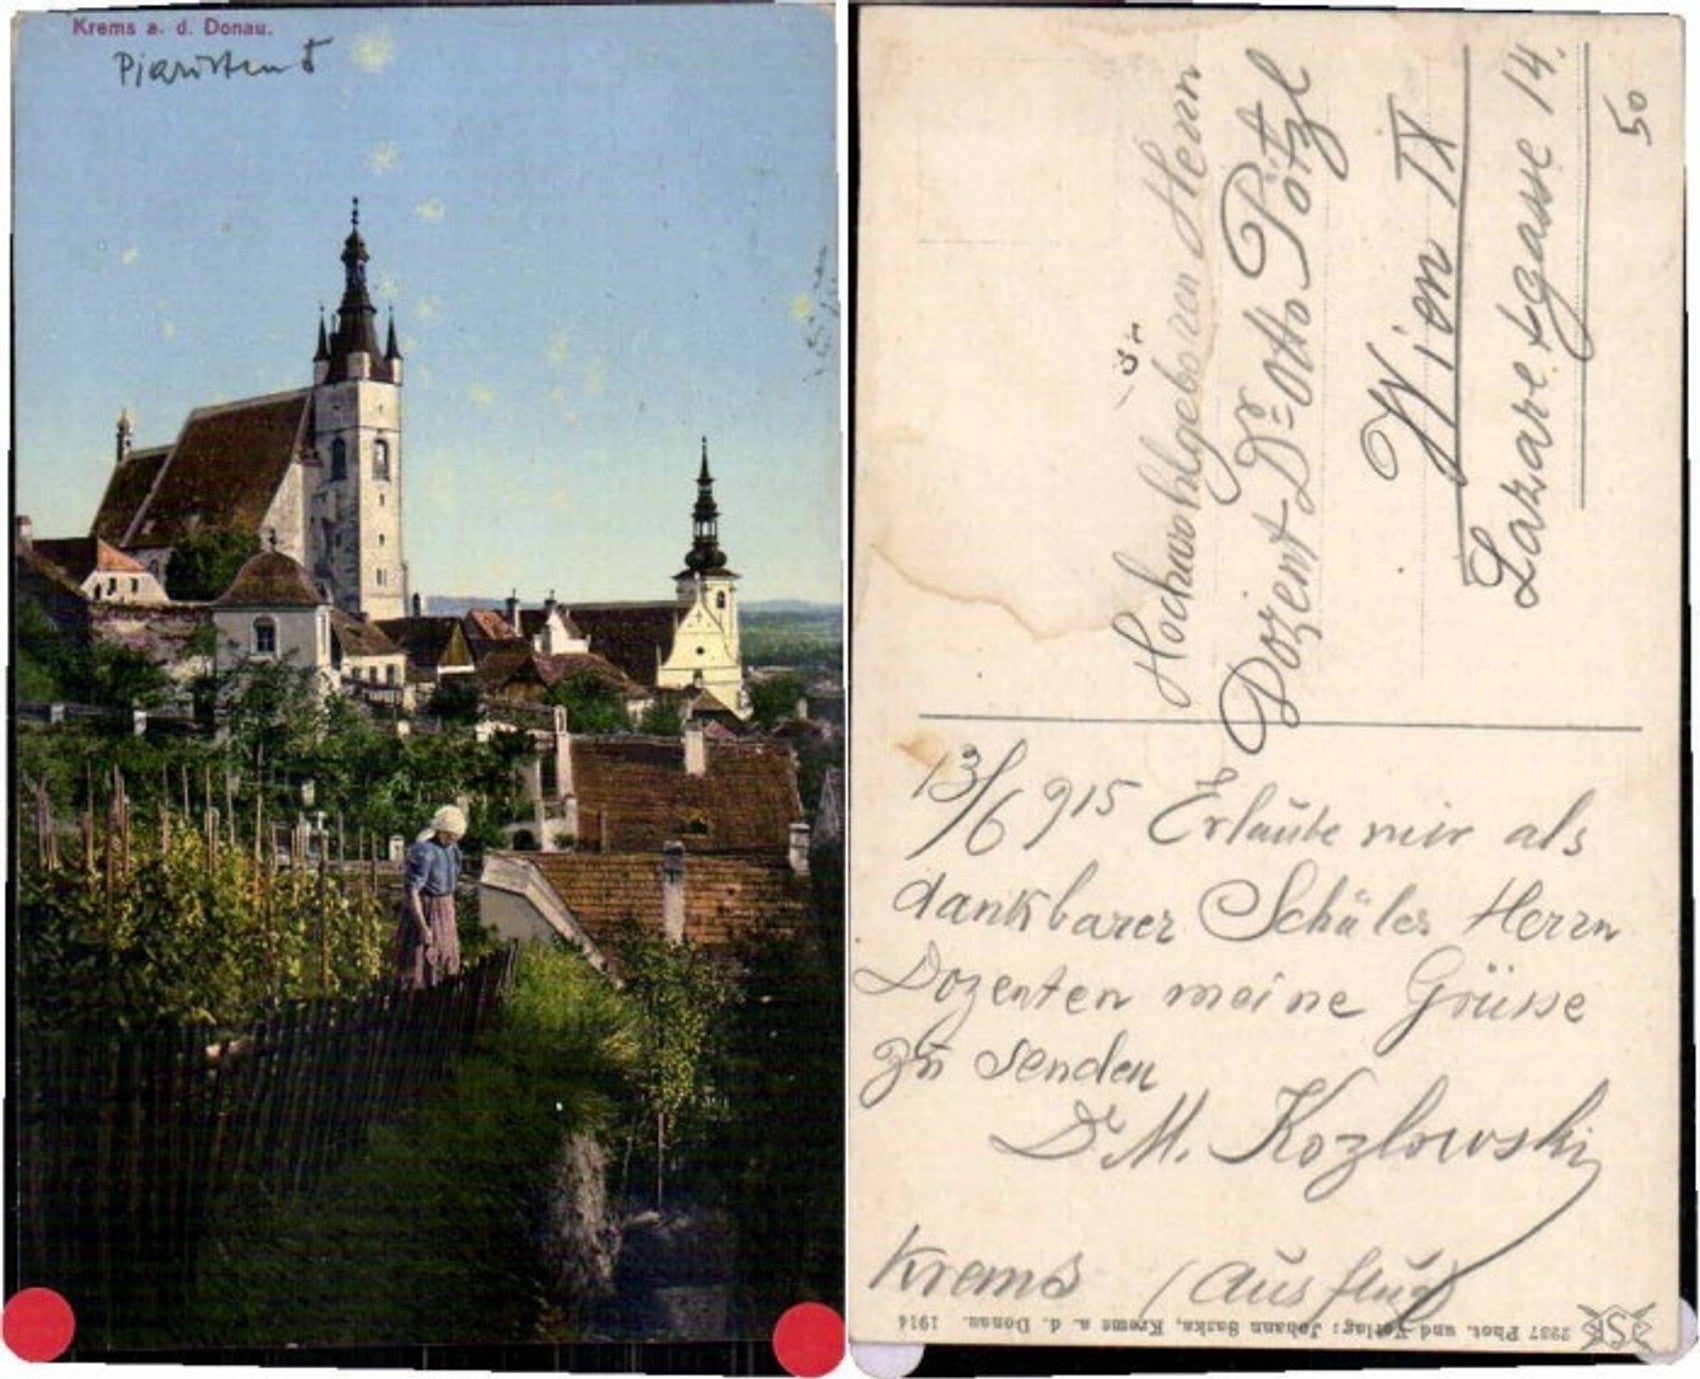 Krems a. d. Donau.
Pjaristen
Hochwohlgeboren Herrn
Dozent Dr. Otto Pötzl
Wien IX
Lazarettgasse 14.
50
13/6 915 Erlaube mir als
dankbarer Schüler Herrn
Dozenten meine Grüsse
zu senden
Dr M. Kozlowski
Krems (Ausflug)
2237 Phot. und Verlag: Johann Saska, Krems a. d. Donau. 1914